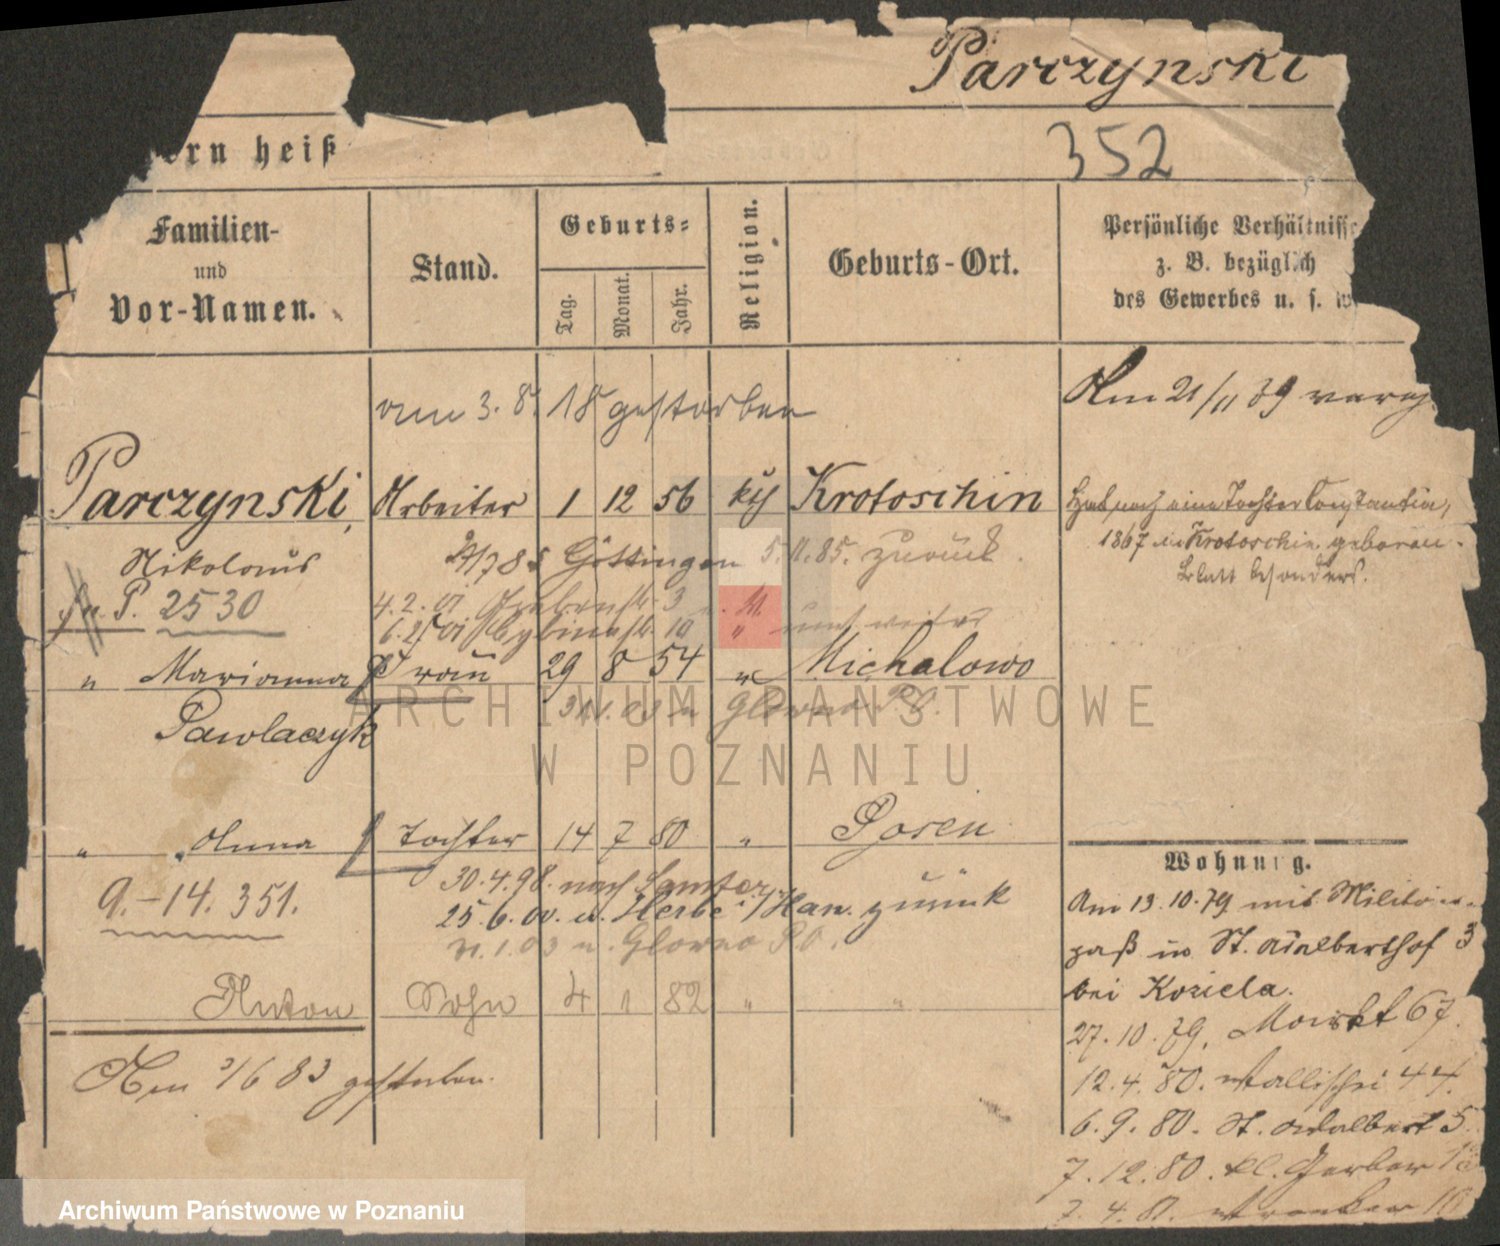 Parczynski
352
ern heiß
Familien-
und
Vor-Namen.
Stand.
Geburts-
Tag.
Monat.
Jahr.
Religion.
Geburts-Ort.
Persönliche Verhältnisse
z. B. bezüglich
des Gewerbes u. s. w.
am 3. 8. 18 gestorben
Am 21/11 79
Parczynski, Arbeiter 1 12 56 kth Krotoschin
Hat noch eine Tochter Constantia,
1867 in Krotoschin geboren.
Blatt besonders.
Nikolaus
Göttingen 5. 11. 85. zurück.
P. 2530
4. 2. 01 Grabenstr. 3
6. 2. 01 Cybinastr. 10 unt weiter
" Marianna Frau 29 8 54 " Michalowo
Glowno P.O.
Pawlaczyk
" Anna Tochter 14 7 80 " Posen
30. 4. 98. nach Samter
9.-14. 351.
25. 6. 00. u. /Han. zurück
1. 03 n. Glowno P.O.
Anton Sohn 4 1 82 " "
Am 3/6 83 gestorben.
Wohnung.
Am 13. 10. 79 mit Militär-
paß in St. Adalberthof 3
bei Koziela.
27. 10. 79. Markt 67.
12. 4. 80. Wallischei 44.
6. 9. 80. St. Adalbert 5.
7. 12. 80. kl. Gerber
7. 4. 81. Wronker
ARCHIWUM PAŃSTWOWE
W POZNANIU
Archiwum Państwowe w Poznaniu